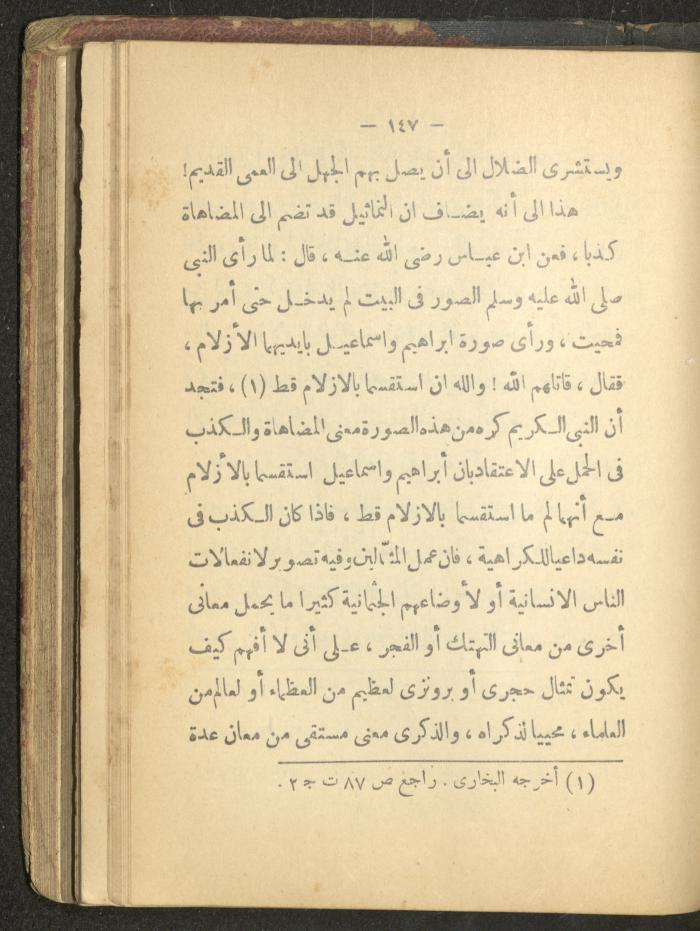 — ١٤٧ —
ويستشرى الضلال الى أن يصل بهم الجهل الى العمى القديم!
هذا الى أنه يضاف ان التماثيل قد تضم الى المضاهاة
كذبا ، فعن ابن عباس رضى الله عنه ، قال : لما رأى النبى
صلى الله عليه وسلم الصور فى البيت لم يدخل حتى أمر بها
فمحيت ، ورأى صورة ابراهيم واسماعيل بايديهما الأزلام ،
فقال ، قاتلهم الله ! والله ان استقسما بالازلام قط (١) ، فتجد
أن النبى الكريم كره من هذه الصورة معنى المضاهاة والكذب
فى الحمل على الاعتقاد بان أبراهيم واسماعيل استقسما بالأزلام
مع أنهما لم ما استقسما بالازلام قط ، فاذا كان الكذب فى
نفسه داعيا للكراهية ، فان عمل المثّالين وفيه تصوير لانفعالات
الناس الانسانية أو لأوضاعهم الجثمانية كثيرا ما يحمل معانى
أخرى من معانى التهتك أو الفجر ، على أنى لا أفهم كيف
يكون تمثال حجرى أو برونزى لعظيم من العظماء أو لعالم من
العلماء ، محييا لذكراه ، والذكرى معنى مستقى من معان عدة
(١) أخرجه البخارى . راجع ص ٨٧ ت ج ٢ .